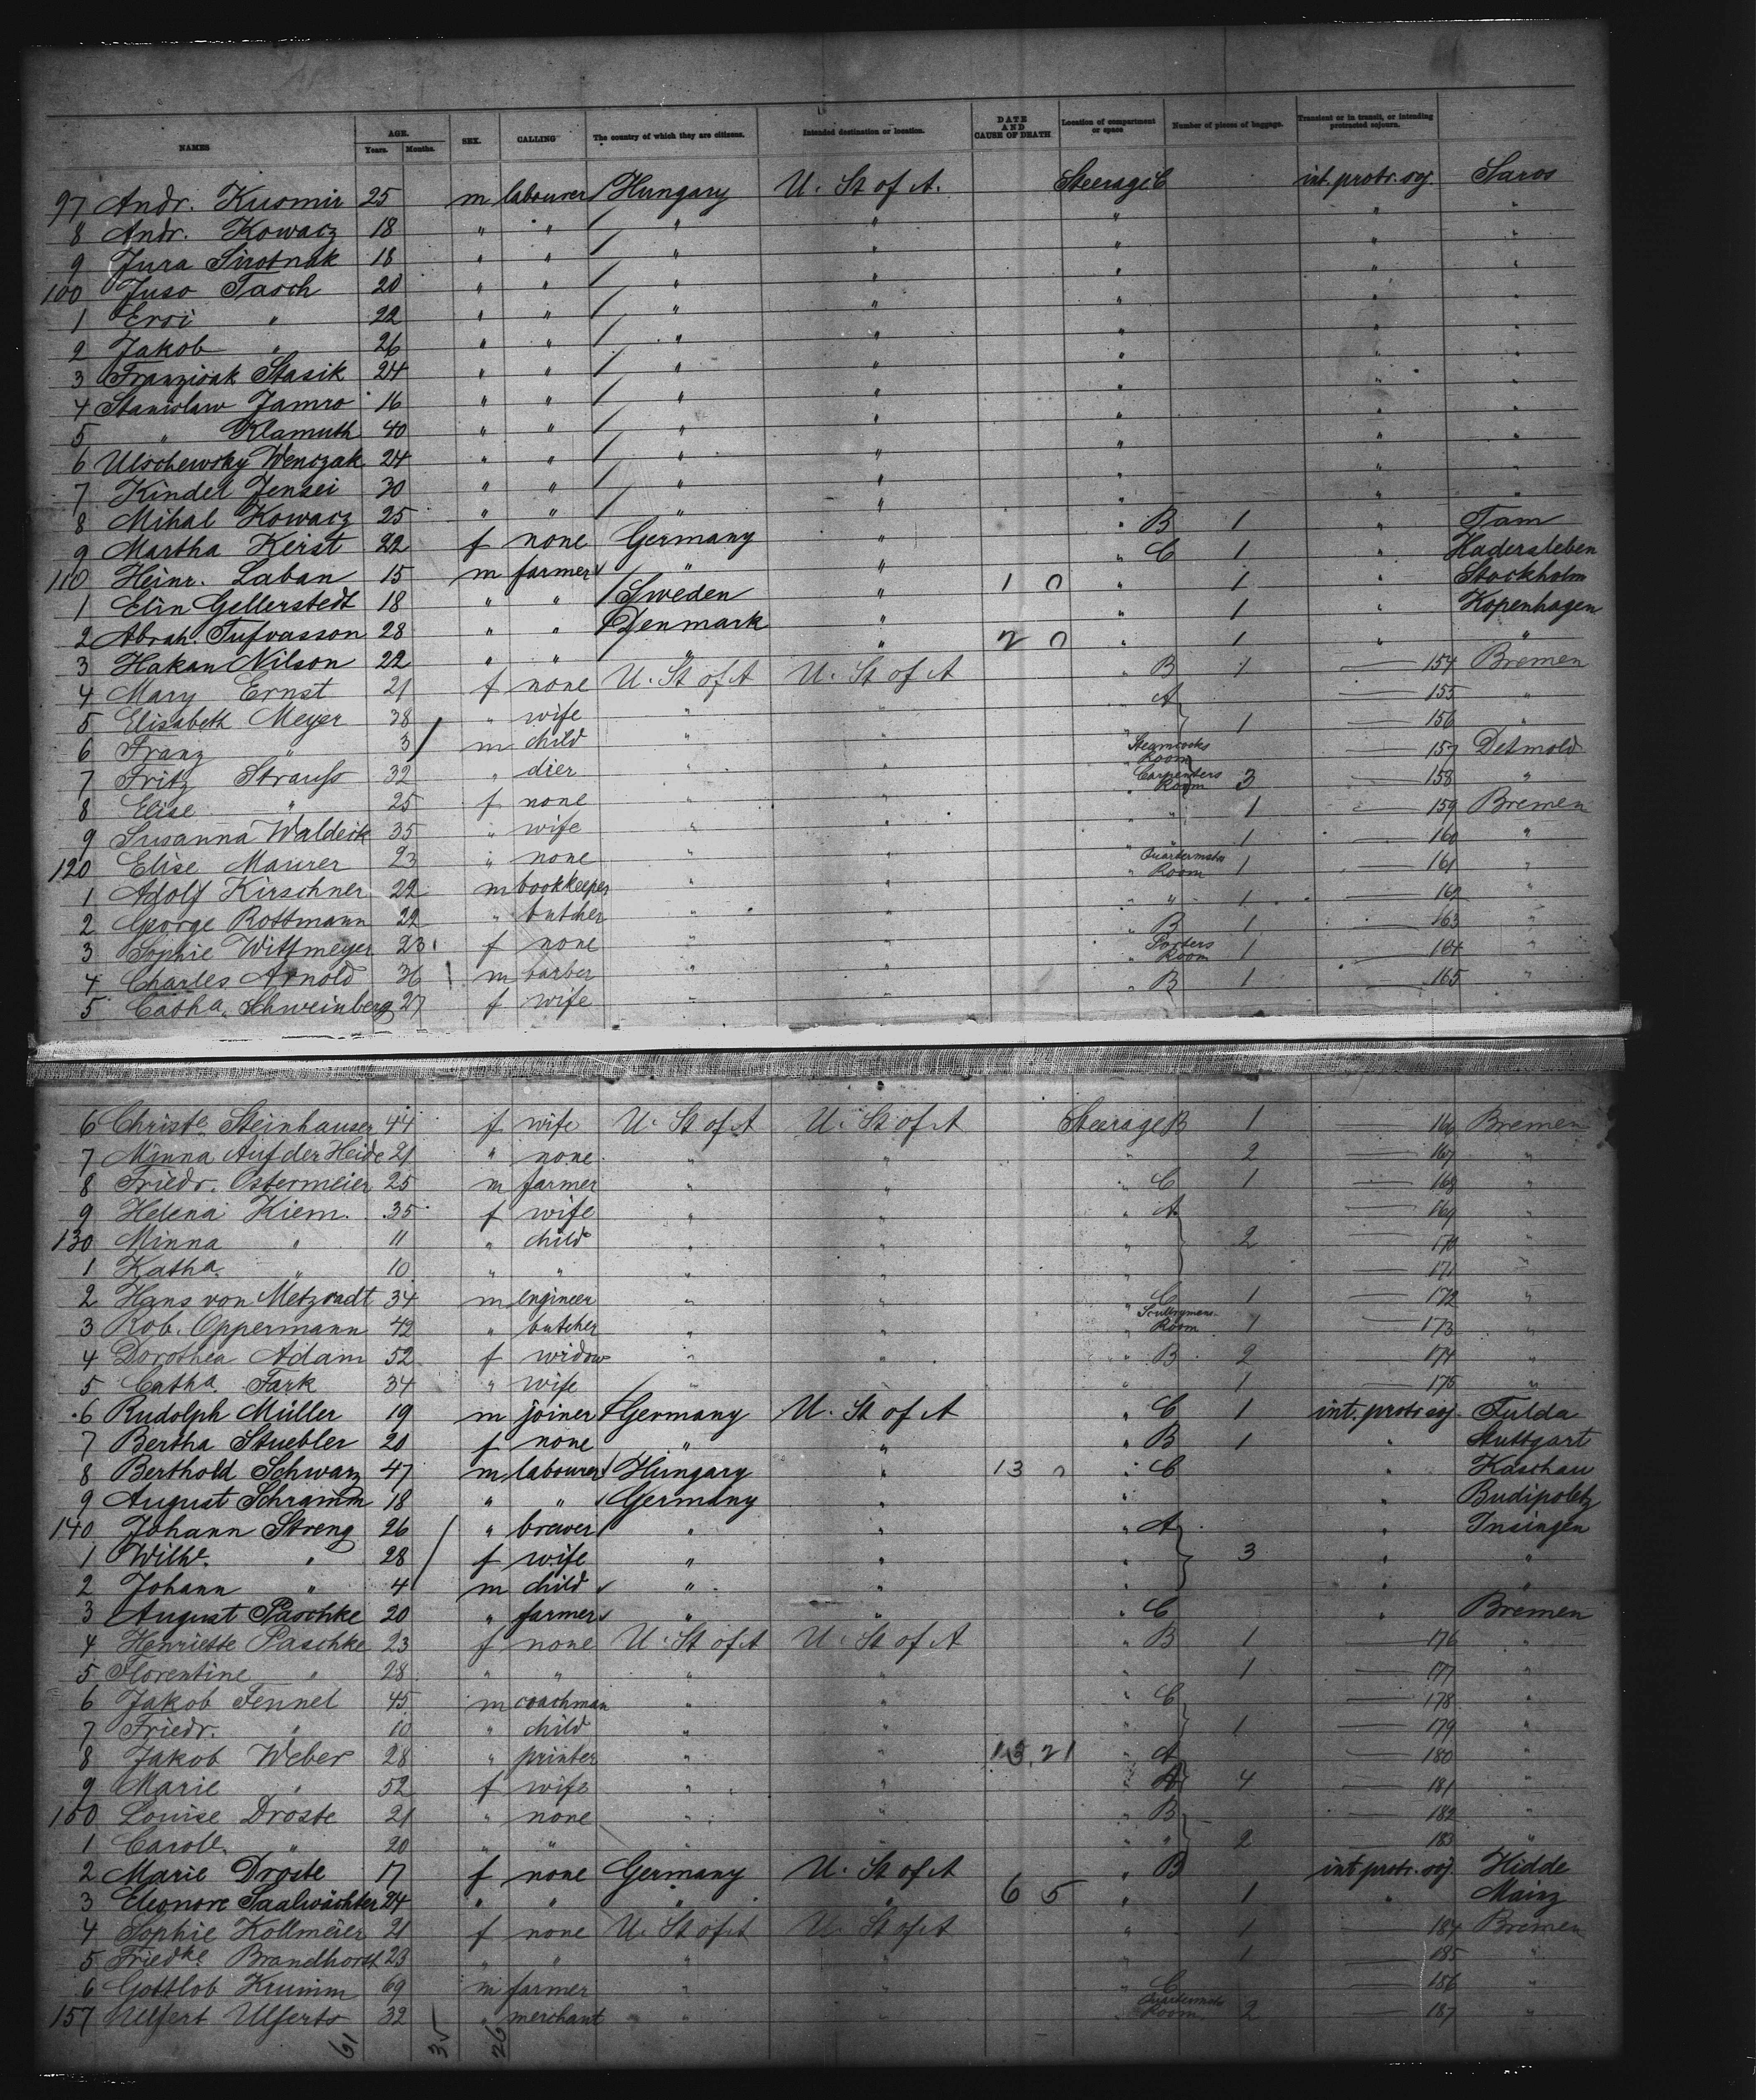 NAMES AGE. Years. Months. SEX. CALLING The country of which they are citizens. Intended destination or location. DATE AND CAUSE OF DEATH Location of compartment or space Number of pieces of baggage. Transient or in transit, or intending protracted sojourn.
97 Andr. Kusmir 25 m labourer Hungary U. St of A. Steerage C int. protr. soj. Saros
8 Andr. Kowacz 18 " " " " " " "
9 Jura Sirotnak 18 " " " " " " "
100 Juso Tasch 20 " " " " " " "
1 Eroi " 22 " " " " " " "
2 Jakob " 26 " " " " " " "
3 Franzisak Stasik 24 " " " " " " "
4 Stanislaw Jamro 16 " " " " " " "
5 " Klamuth 40 " " " " " " "
6 Ulschewsky Wenczak 24 " " " " " " "
7 Kindel Jensei 30 " " " " " " "
8 Mihal Kowacz 25 " " " " " " "
9 Martha Keist 22 f none Germany " " B 1 " Tam
110 Heinr. Laban 15 m farmer " " " C 1 " Hadersleben
1 Elin Gellerstedt 18 " " Sweden " 1 0 " 1 " Stockholm
2 Abrah. Tufvasson 28 " " Denmark " " 1 " Kopenhagen
3 Hakan Nilson 22 " " " " 2 0 " 1 " "
4 Mary Ernst 21 f none U. St of A U. St of A " B 1 — 154 Bremen
5 Elisabeth Meyer 38 " wife " " " A — 155 "
6 Franz " 3 m child " " " 1 — 156 "
7 Fritz Strauss 32 " dier " " Steamcooks Room — 157 Detmold
8 Elise " 25 f none " " " Carpenters Room 3 — 158 "
9 Susanna Waldeck 35 " wife " " " " 1 — 159 Bremen
120 Elise Maurer 23 " none " " " " 1 — 160 "
1 Adolf Kirschner 22 m bookkeeper " " " Quartermstrs Room 1 — 161 "
2 George Rottmann 22 " butcher " " " " 1 — 162 "
3 Sophie Wittmeyer 23 f none " " " B 1 — 163 "
4 Charles Arnold 36 m barber " " " Porters Room 1 — 164 "
5 Catha. Schweinberg 27 f wife " " " B 1 — 165 "
6 Christe. Steinhauser 44 f wife U. St of A U. St of A Steerage B 1 — 166 Bremen
7 Minna Auf der Heide 21 " none " " " 2 — 167 "
8 Friedr. Ostermeier 25 m farmer " " " C 1 — 168 "
9 Helena Kiem. 35 f wife " " " A — 169 "
130 Minna " 11 " child " " " 2 — 170 "
1 Katha. " 10 " " " " " — 171 "
2 Hans von Metzradt 34 m engineer " " " C 1 — 172 "
3 Rob. Oppermann 42 " butcher " " " Scullrymens Room 1 — 173 "
4 Dorothea Adam 52 f widow " " " B 2 — 174 "
5 Catha. Fark 34 " wife " " " 1 — 175 "
6 Rudolph Müller 19 m joiner Germany U. St of A " C 1 int. protr. soj. Fulda
7 Bertha Stuebler 20 f none " " " B 1 " Stuttgart
8 Berthold Schwarz 47 m labourer Hungary " 13 0 " C " Kaschau
9 August Schramm 18 " " Germany " " " Budipoletz
140 Johann Streng 26 " brewer " " " A " Insingen
1 Wilhe. " 28 f wife " " " 3 " "
2 Johann " 4 m child " " " " "
3 August Paschke 20 " farmer " " " C " Bremen
4 Henriette Paschke 23 f none U. St of A U. St of A " B 1 — 176 "
5 Florentine " 28 " " " " " 1 — 177 "
6 Jakob Fennel 45 m coachman " " " C — 178 "
7 Friedr. " 10 " child " " " 1 — 179 "
8 Jakob Weber 28 " printer " " 13,21 " A — 180 "
9 Marie " 52 f wife " " " A 4 — 181 "
150 Louise Droste 21 " none " " " B — 182 "
1 Carole. " 20 " " " " " " 2 — 183 "
2 Marie Droste 17 f none Germany U. St of A " B int. protr. soj. Hidde
3 Eleonore Saalwächter 24 " " " " 6 5 " 1 " Mainz
4 Sophie Kollmeier 21 f none U. St of A U. St of A " 1 — 184 Bremen
5 Friedke. Brandhorst 23 " " " " " 1 — 185 "
6 Gottlob Krumm 69 m farmer " " " C — 186 "
157 Ulfert Ulferts 32 " merchant " " " Quartermstrs Room 2 — 187 "
61 35 26